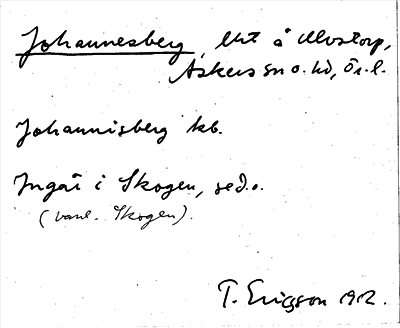 Johannesberg, lht å Ulvstorp,
Askers sn o. hd, Ör. l.
Johannisberg kb.
Ingår i Skogen, se d. o.
(vanl. Skogen).
T. Ericsson 1912.